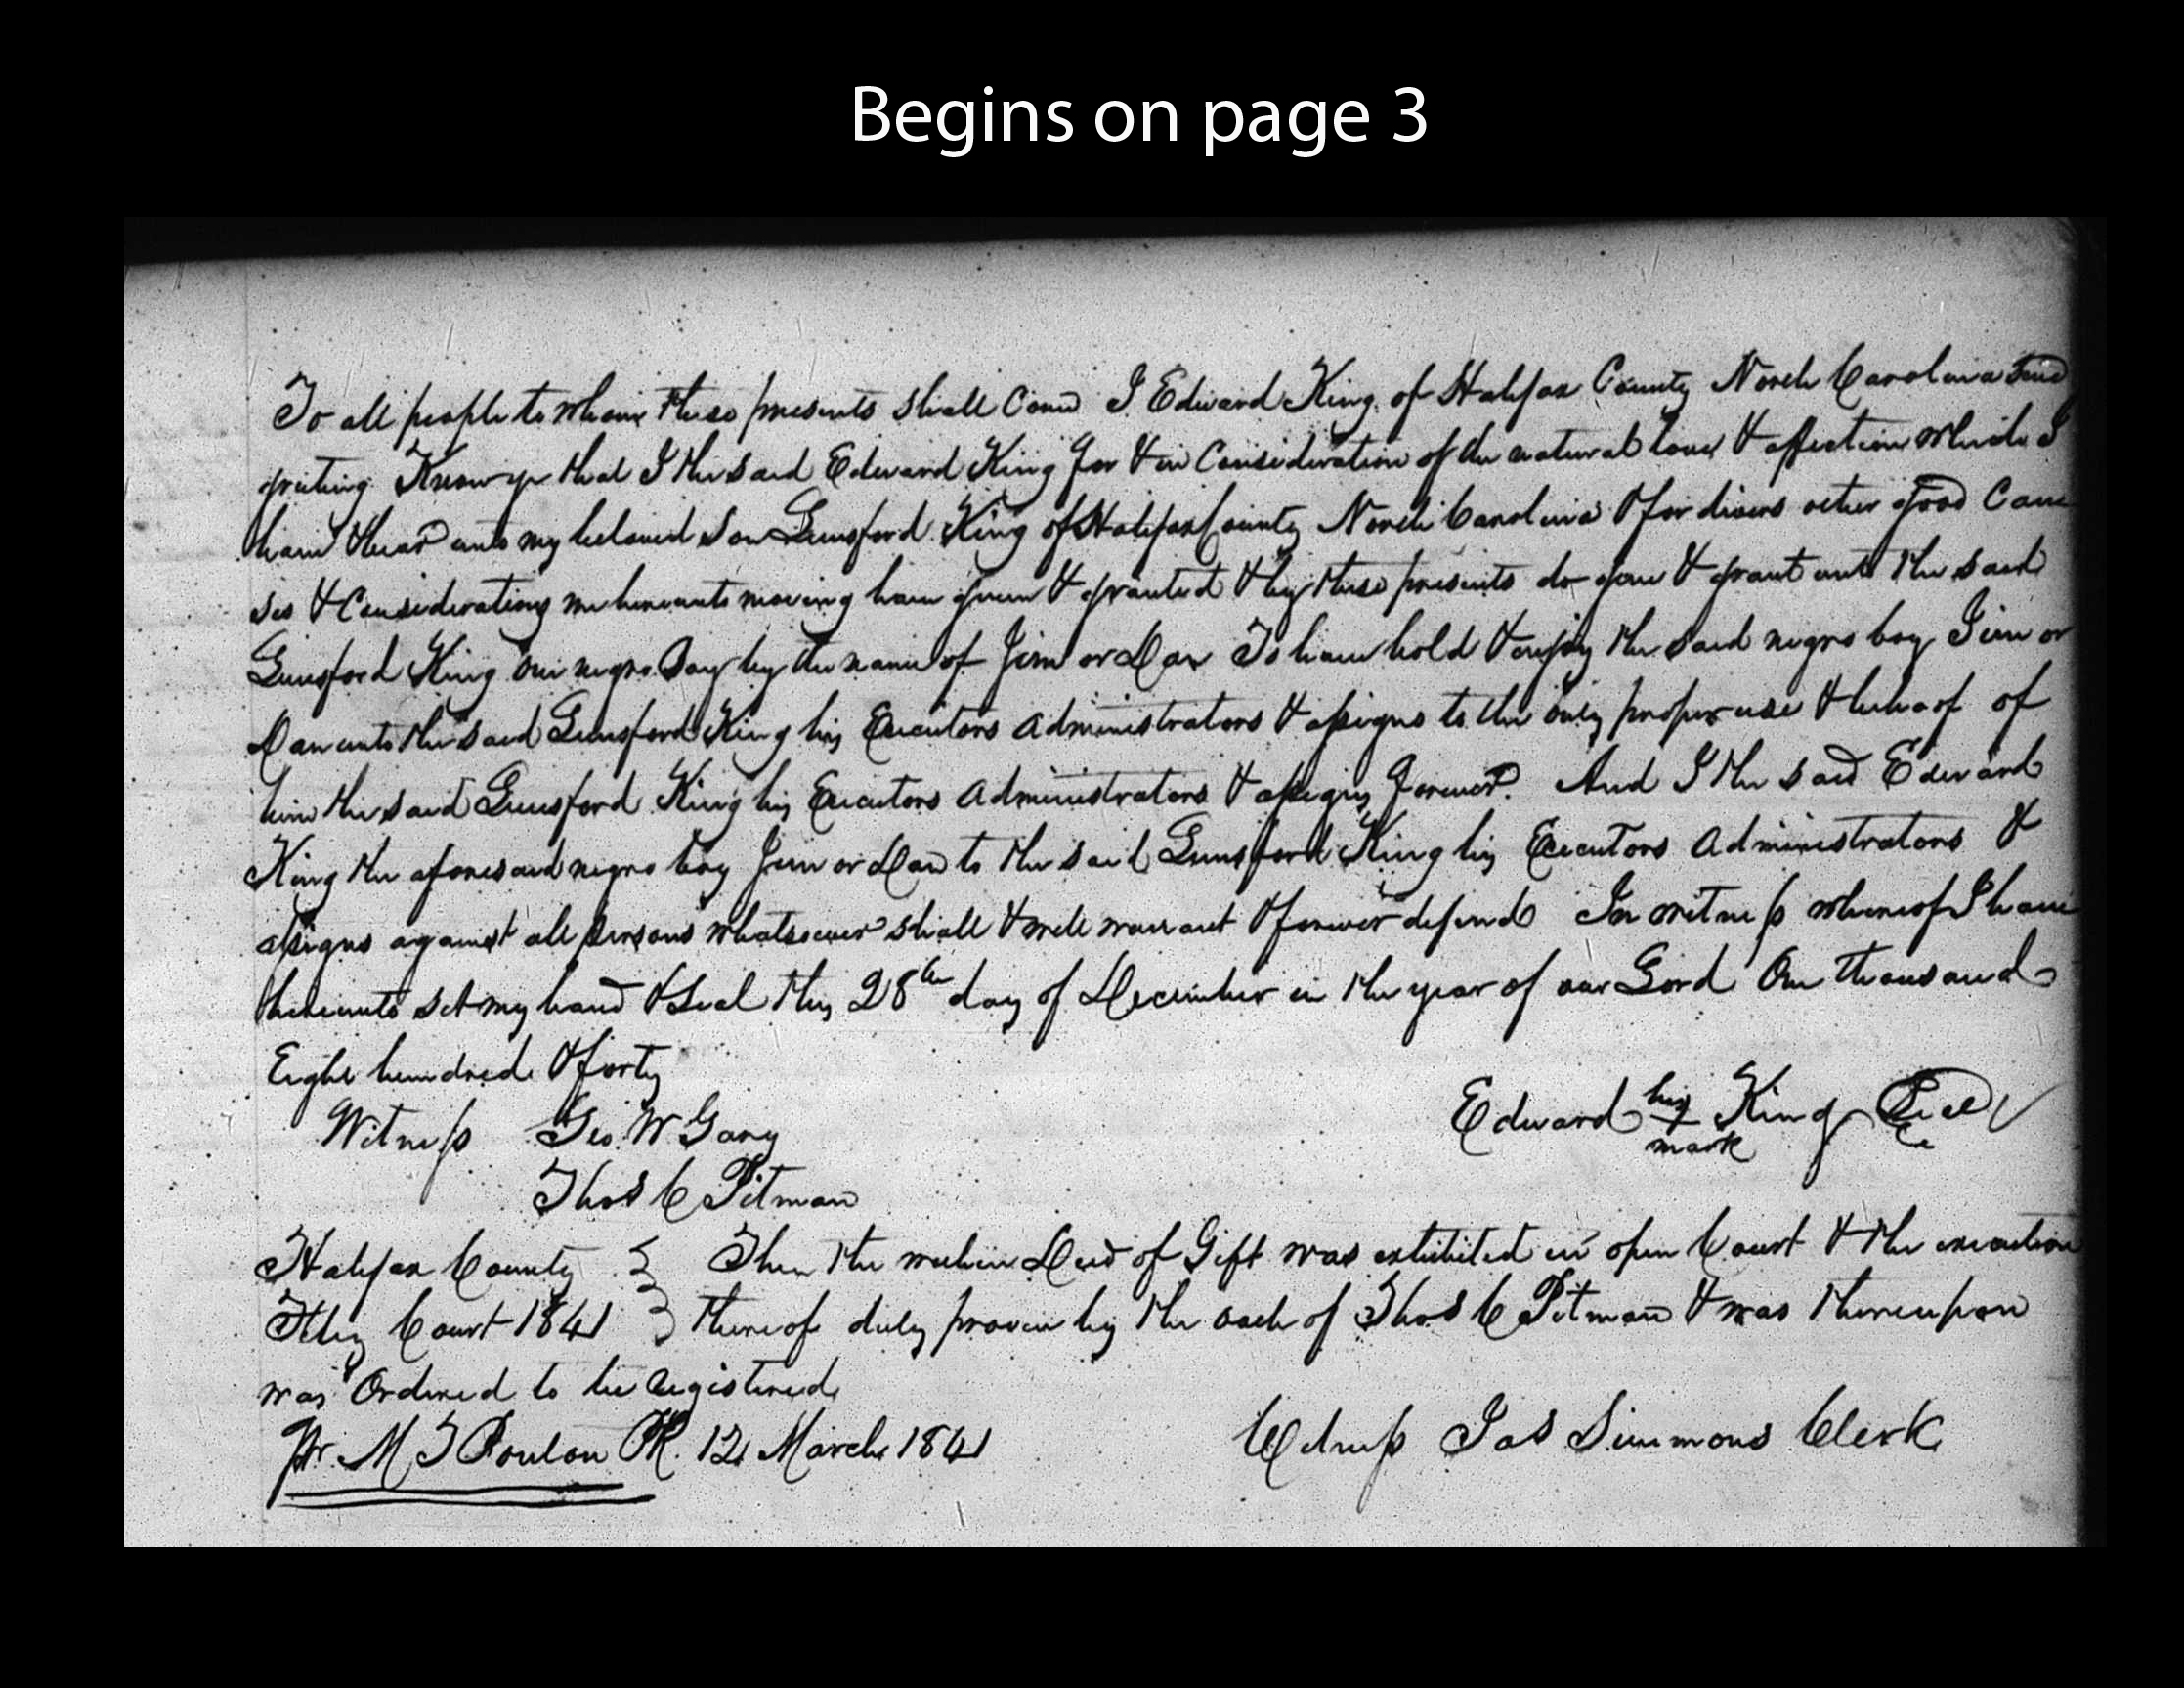 Begins on page 3
To all people to whom these presents shall come I Edward King of Halifax County North Carolina Send
griting Know ye that I the said Edward King for & in Consideration of the natural love & affection which I
have & bear unto my beloved Son Lunsford King of Halifax County North Carolina & for divers other good Cau
ses & Considerations me hereunto moving have given & granted & by these presents do give & grant unto the said
Lunsford King one negro Boy by the name of Jim or Dan To have hold & enjoy the said negro boy Jim or
Dan unto the said Lunsford King his Executors Administrators & assigns to the only proper use & behoof of
him the said Lunsford King his Executors Administrators & assigns forever. And I the said Edward
King the aforesaid negro boy Jim or Dan to the said Lunsford King his Executors Administrators &
assigns against all persons whatsoever shall & will warrant & forever defend In witness whereof I have
hereunto set my hand & Seal this 28th day of December in the year of our Lord One thousand
Eight hundred & forty
Edward his King Seal
mark
Witness Geo. W Gary
Thos C Pitman
Halifax County Then the within Deed of Gift was exhibited in open Court & the execution
Feby Court 1841 thereof duly proven by the oath of Thos C Pitman & was thereupon
was Ordered to be registered
Witness Jas Simmons Clerk
Pr. M T Ponton PR. 12 March 1841